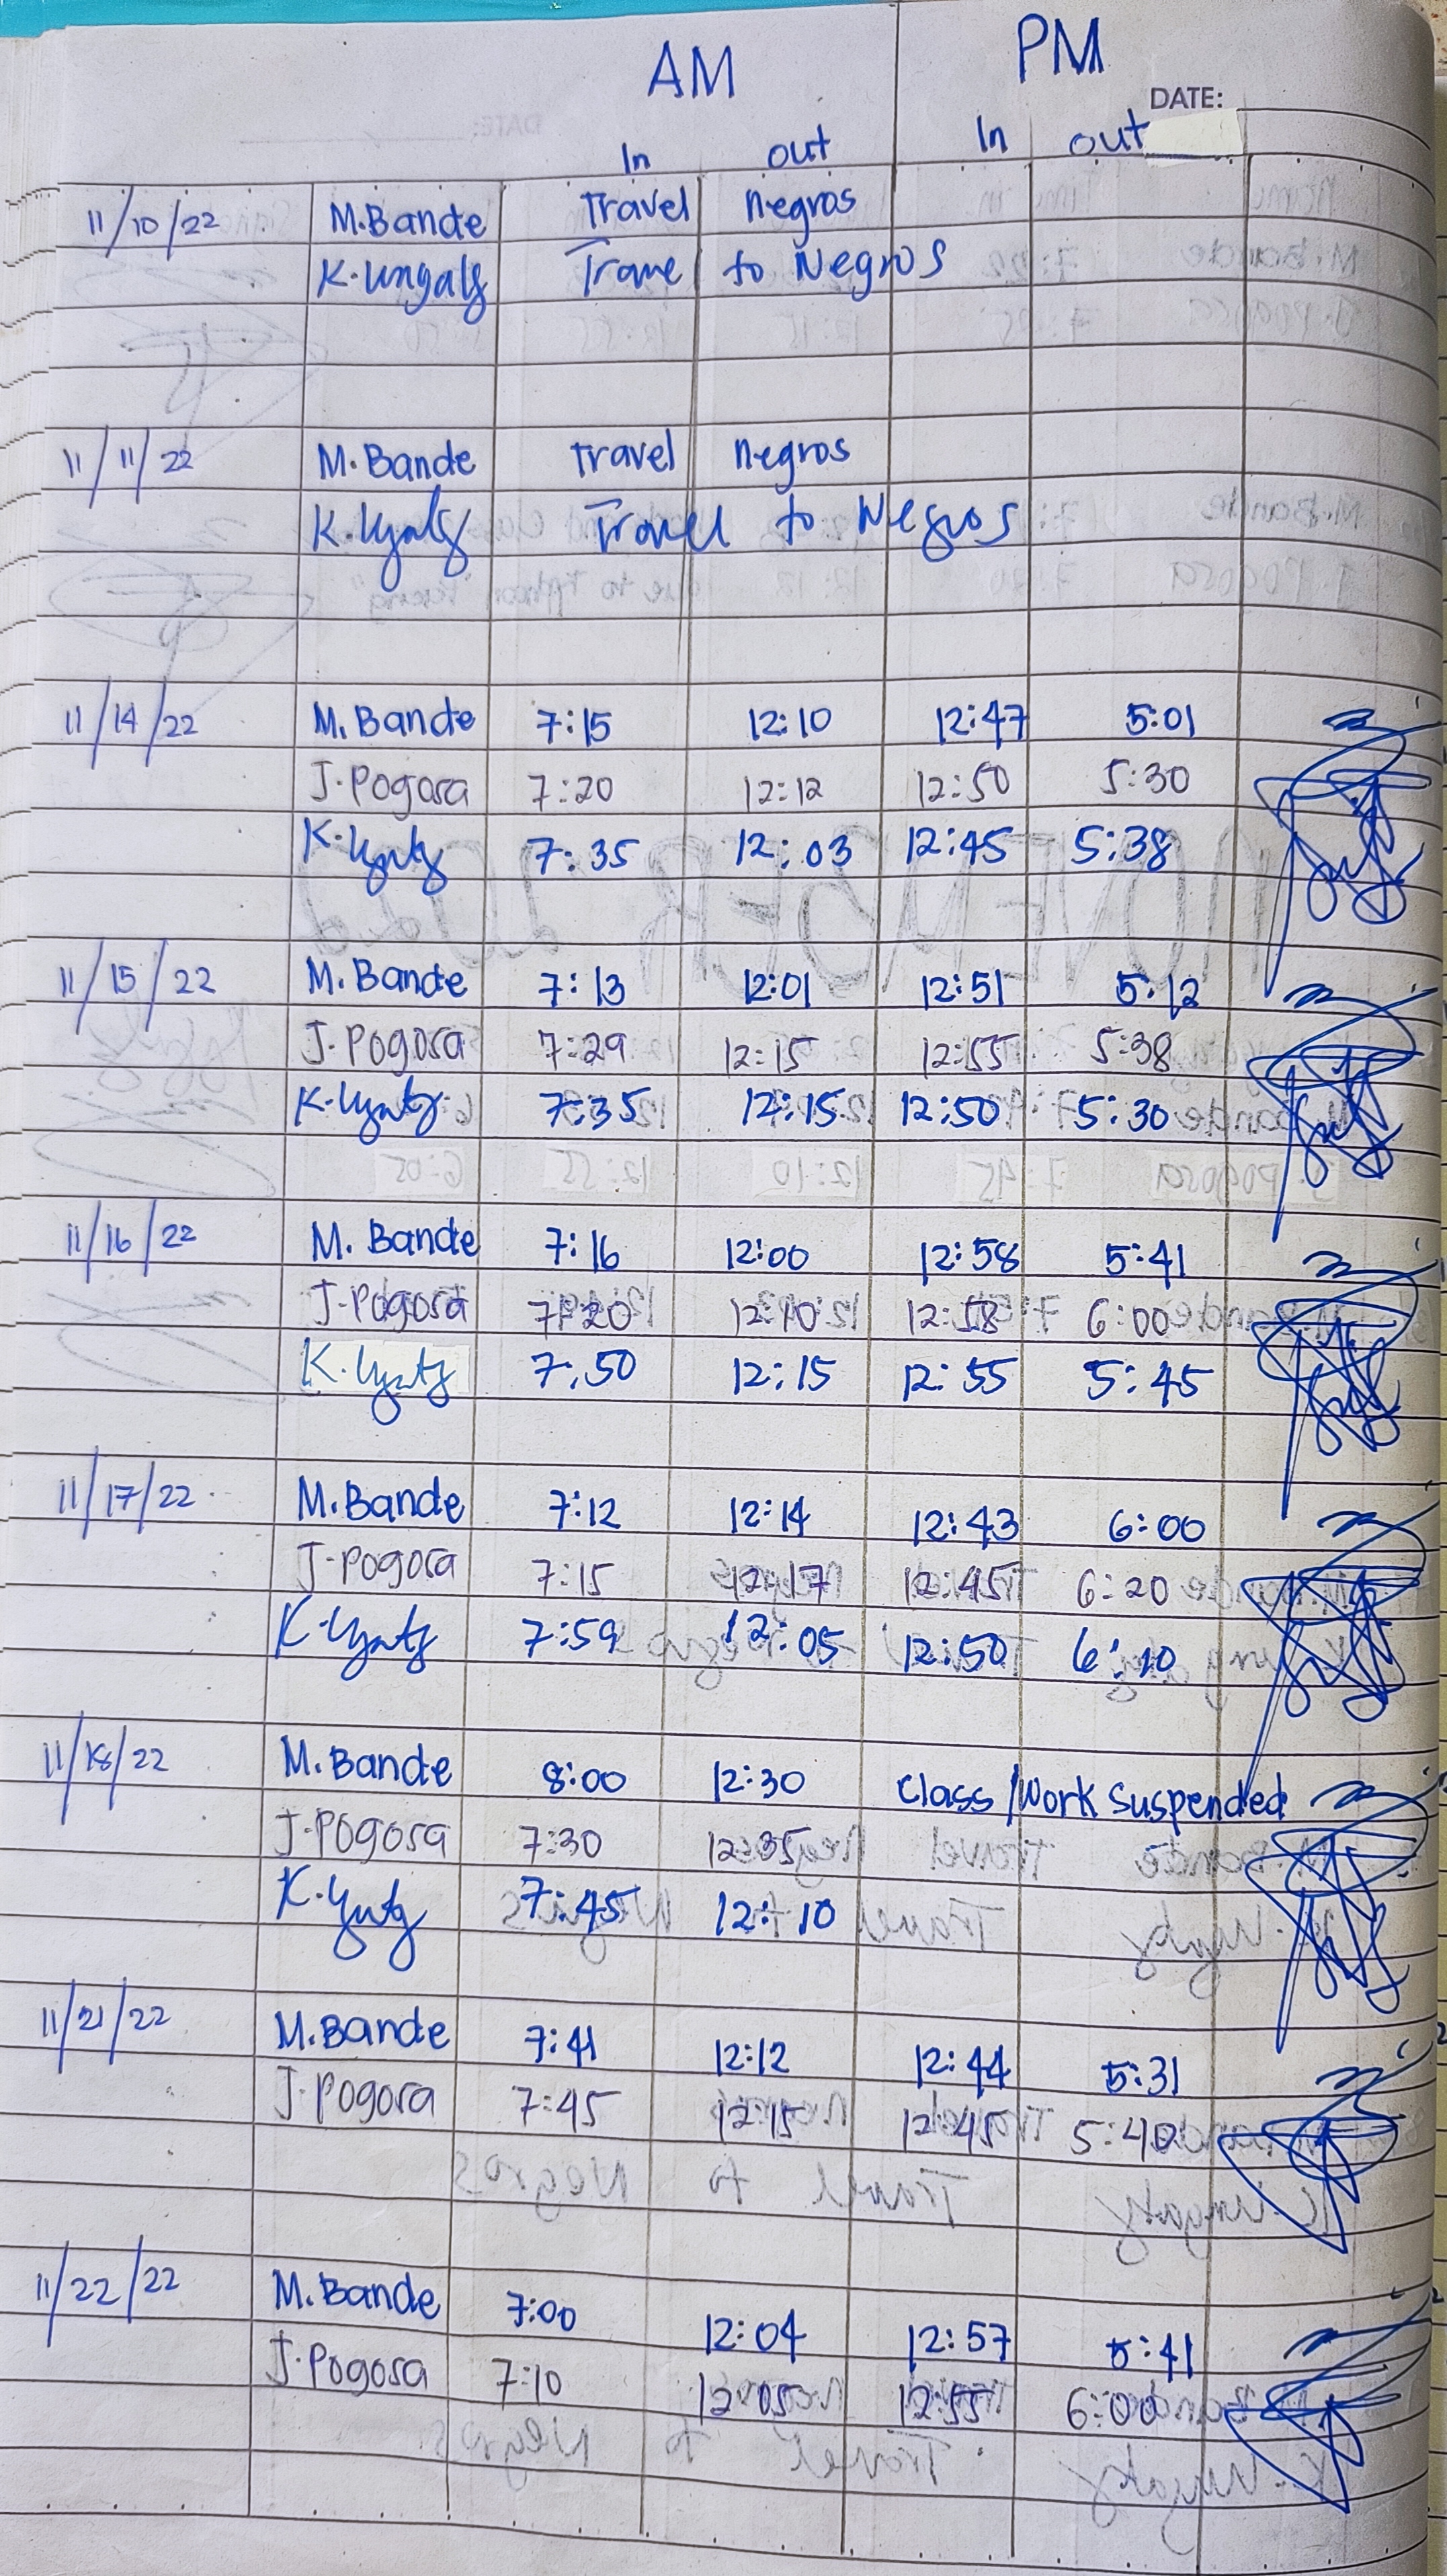 AM PM
DATE:
In out In out
11/10/22 M.Bande Travel negros
K.Ungaty Trave to Negros
11/11/22 M.Bande travel negros
Travel to Negros
11/14/22 M. Bande 7:15 12:10 12:47 5:01
J.Pogosa 7:20 12:12 12:50 5:30
7:35 12:03 12:45 5:38
11/15/22 M.Bande 7:13 12:01 12:51 5:12
J.Pogosa 7:29 12:15 12:55 5:38
7:35 12:15 12:50 5:30
11/16/22 M. Bande 7:16 12:00 12:58 5:41
J.Pogosa 7:20 12:10 12:58 6:00
7:50 12:15 12:55 5:45
11/17/22 M.Bande 7:12 12:14 12:43 6:00
J.Pogosa 7:15 12:17 12:45 6:20
7:59 12:05 12:50 6:10
11/18/22 M.Bande 8:00 12:30 Class/Work Suspended
J.Pogosa 7:30 12:35
7:45 12:10
11/21/22 M.Bande 7:41 12:12 12:44 5:31
J.Pogosa 7:45 12:15 12:45 5:40
11/22/22 M.Bande 7:00 12:04 12:57 5:41
J.Pogosa 7:10 12:05 12:55 6:00